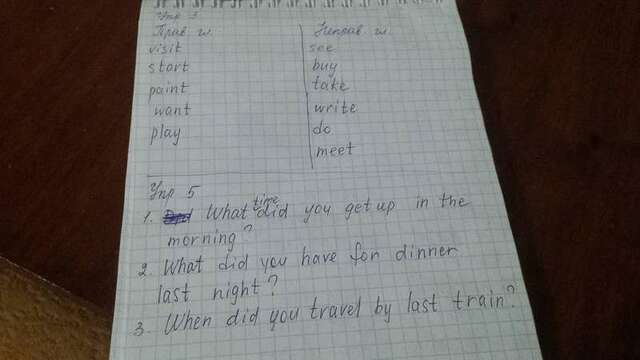 Упр 3
Прав гл. Неправ гл.
visit see
start buy
paint take
want write
play do
meet
Упр 5
1. What time did you get up in the
morning?
2. What did you have for dinner
last night?
3. When did you travel by last train?